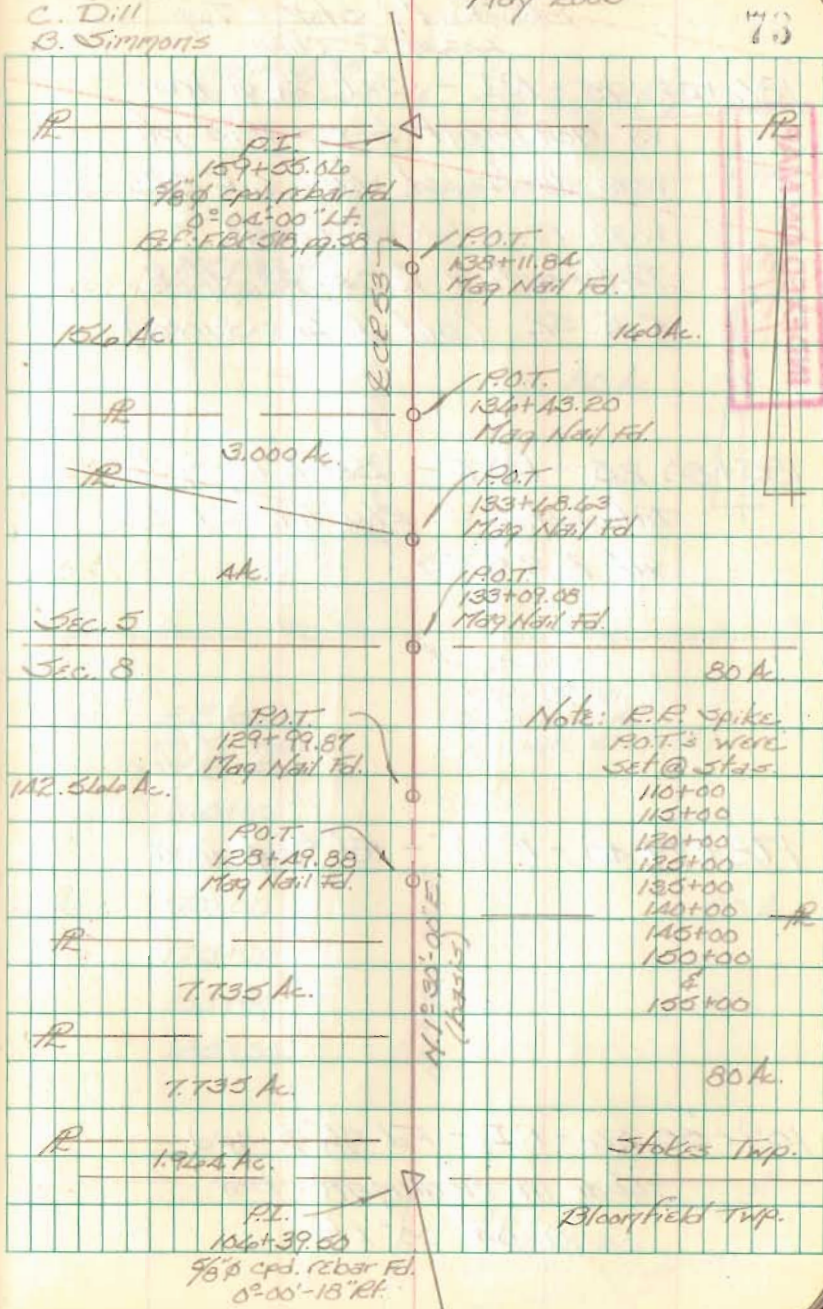 C. Dill
B. Simmons
May
73
PL
PL
P.I.
159+55.06
5/8"ø cpd. rebar Fd.
0°-04'-00" Lt.
Ref: F.BK 51B, pg. 58
P.O.T.
138+11.84
Mag Nail Fd.
156 Ac.
160 Ac.
℄ CR 53
P.O.T.
136+43.20
Mag Nail Fd.
PL
3.000 Ac.
PL
P.O.T.
133+68.63
Mag Nail Fd.
4 Ac.
P.O.T.
133+09.08
Mag Nail Fd.
Sec. 5
Sec. 8
80 Ac.
P.O.T.
129+99.87
Mag Nail Fd.
Note: R.R. Spike
P.O.T.'s were
set @ Stas.
110+00
115+00
120+00
125+00
135+00
140+00
145+00
150+00
&
155+00
142.566 Ac.
P.O.T.
128+49.88
Mag Nail Fd.
PL
PL
N.1°-30'-00"E.
(basis)
7.735 Ac.
PL
7.735 Ac.
80 Ac.
PL
1.964 Ac.
Stokes Twp.
Bloomfield Twp.
P.I.
106+39.50
5/8"ø cpd. rebar Fd.
0°-00'-18" Rt.